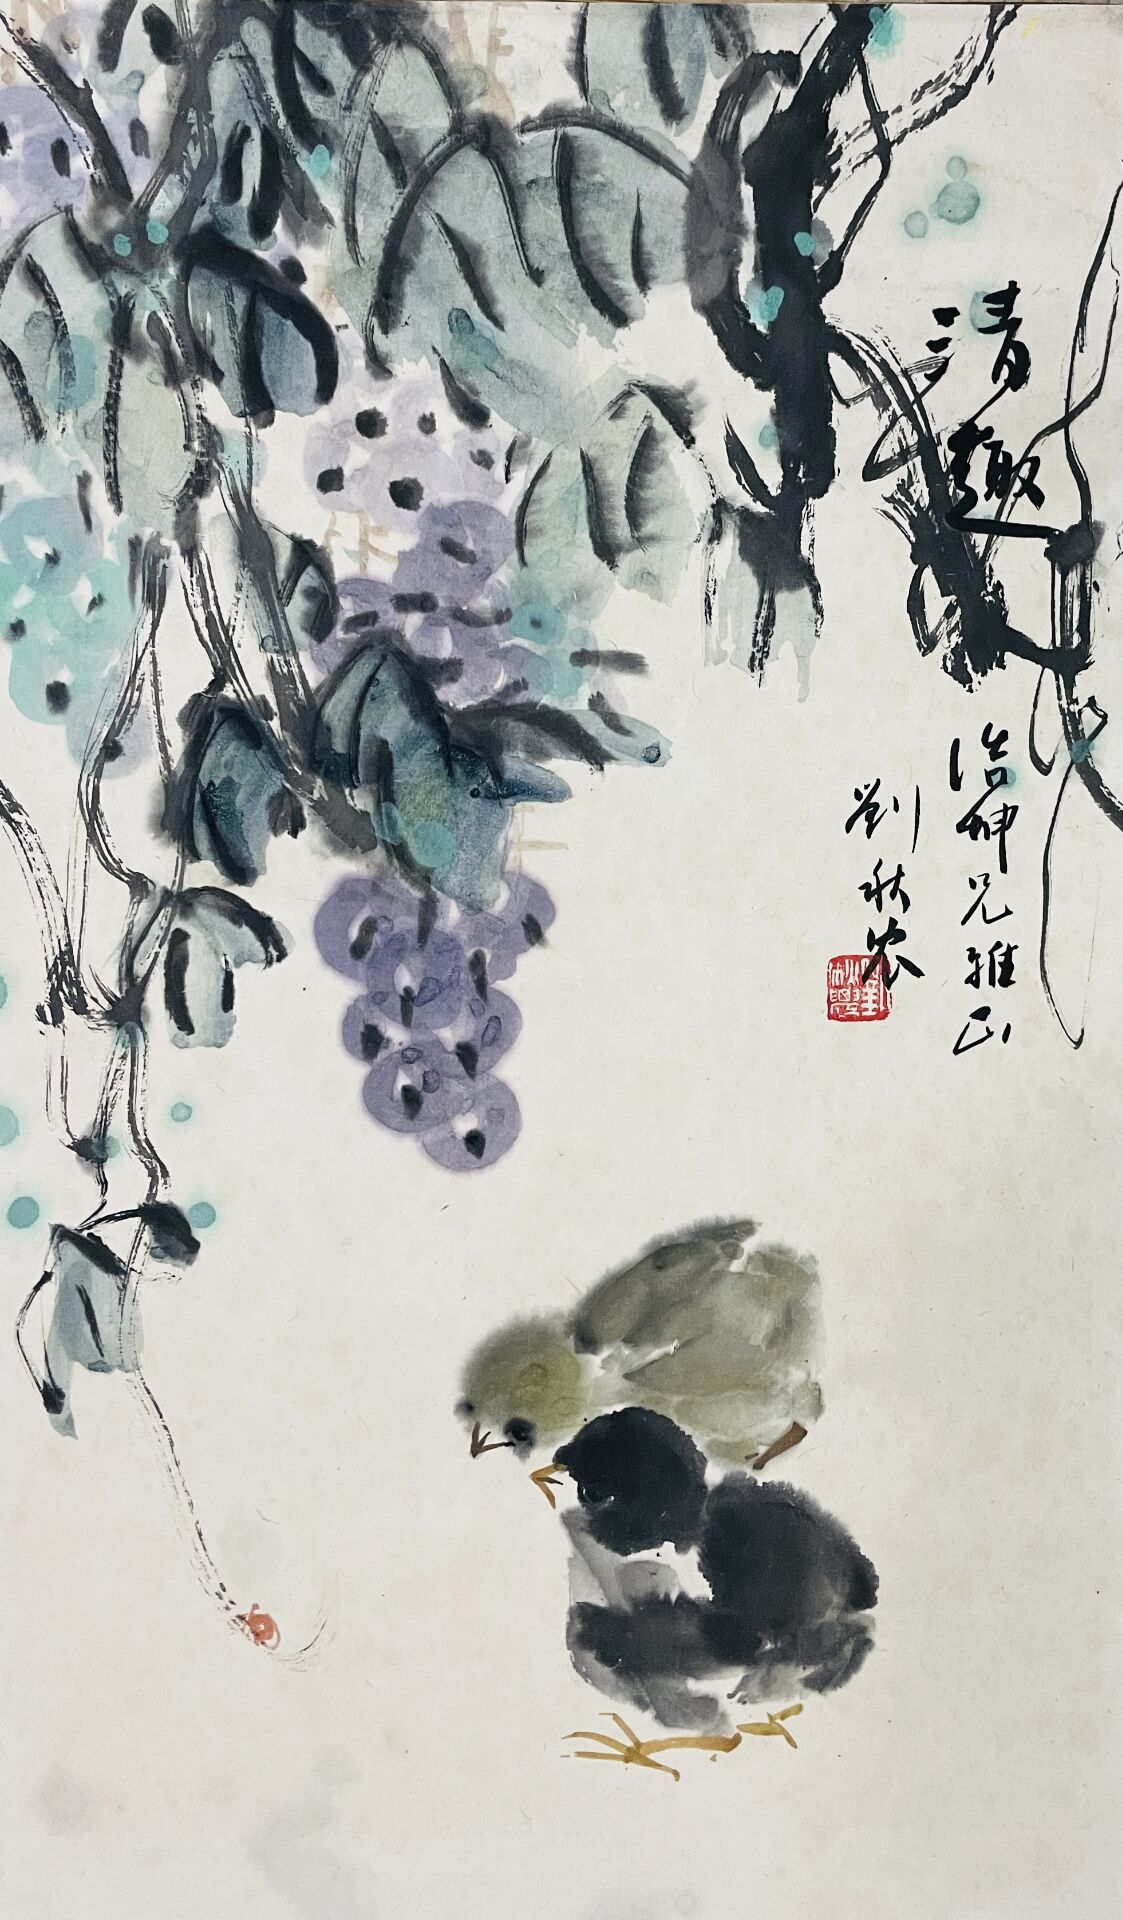 清趣
浩坤兄雅正
劉秋农